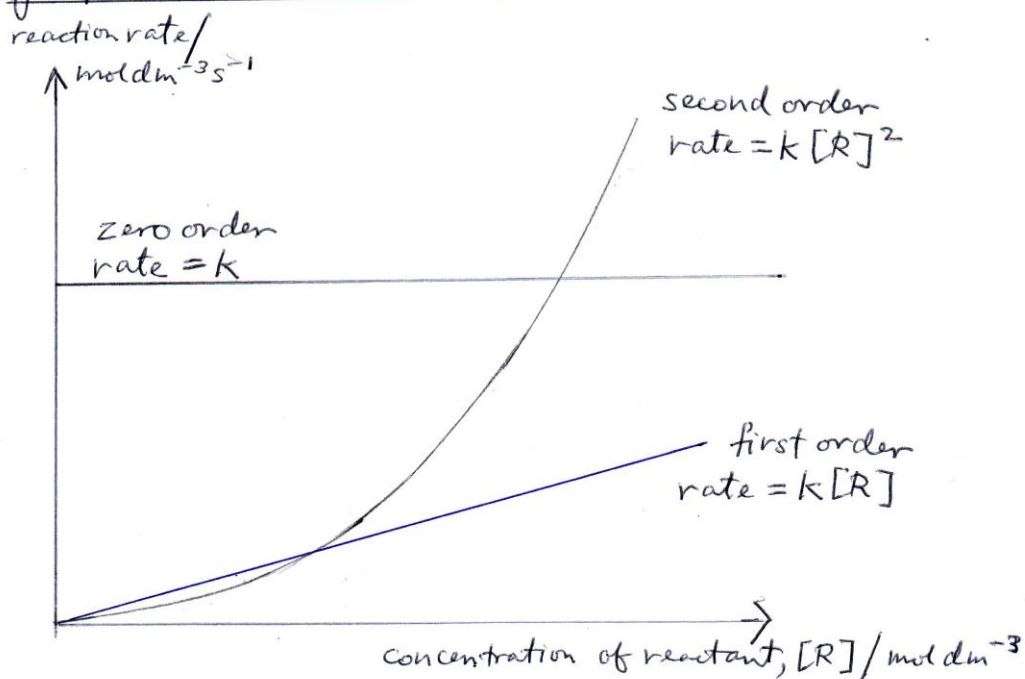 reaction rate/
mol dm⁻³ s⁻¹
second order
rate = k [R]²
zero order
rate = k
first order
rate = k [R]
concentration of reactant, [R] / mol dm⁻³